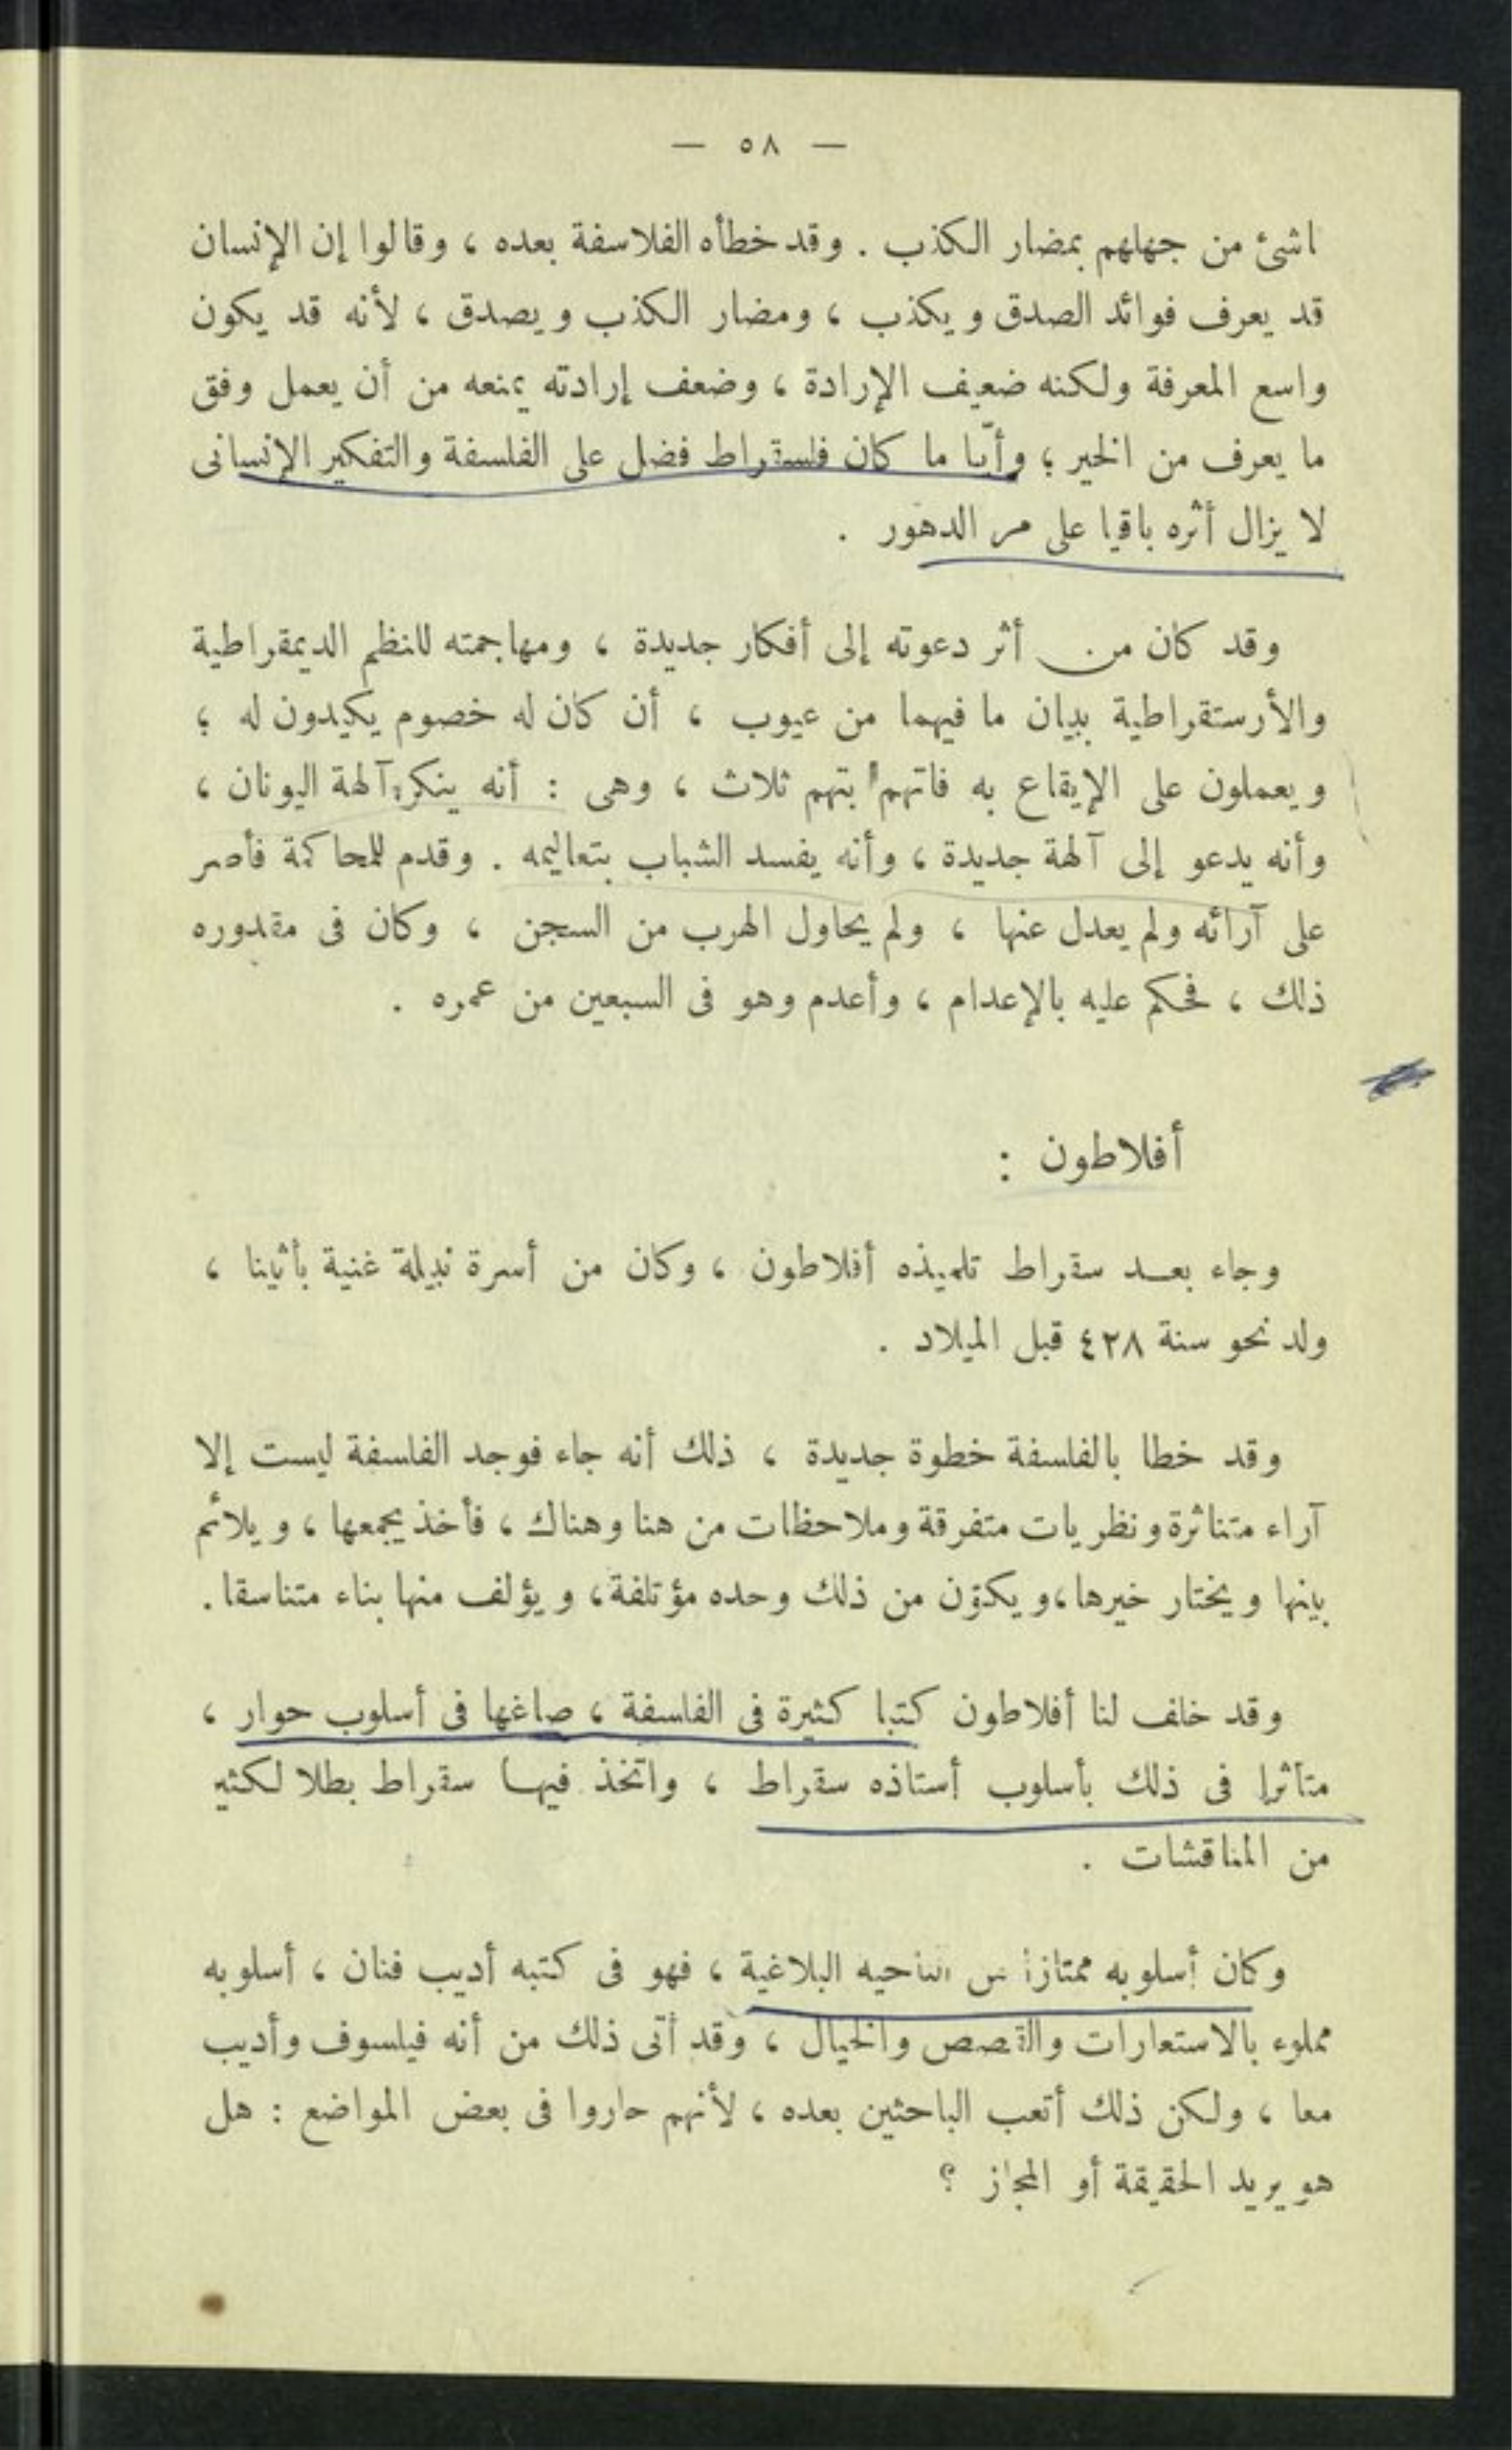 — ٥٨ —
اشئ من جهلهم بمضار الكذب . وقد خطأه الفلاسفة بعده ، وقالوا إن الإنسان
قد يعرف فوائد الصدق ويكذب ، ومضار الكذب ويصدق ، لأنه قد يكون
واسع المعرفة ولكنه ضعيف الإرادة ، وضعف إرادته يمنعه من أن يعمل وفق
ما يعرف من الخير ؛ وأيا ما كان فلسقراط فضل على الفلسفة والتفكير الإنسانى
لا يزال أثره باقيا على مر الدهور .
وقد كان من أثر دعوته إلى أفكار جديدة ، ومهاجمته للنظم الديمقراطية
والأرستقراطية ببيان ما فيهما من عيوب ، أن كان له خصوم يكيدون له ؛
ويعملون على الإيقاع به فاتهم بتهم ثلاث ، وهى : أنه ينكر آلهة اليونان ،
وأنه يدعو إلى آلهة جديدة ، وأنه يفسد الشباب بتعاليمه . وقدم للمحاكمة فأصر
على آرائه ولم يعدل عنها ، ولم يحاول الهرب من السجن ، وكان فى مقدوره
ذلك ، فحكم عليه بالإعدام ، وأعدم وهو فى السبعين من عمره .
أفلاطون :
وجاء بعد سقراط تلميذه أفلاطون ، وكان من أسرة نبيلة غنية بأثينا ،
ولد نحو سنة ٤٢٨ قبل الميلاد .
وقد خطا بالفلسفة خطوة جديدة ، ذلك أنه جاء فوجد الفلسفة ليست إلا
آراء متناثرة ونظريات متفرقة وملاحظات من هنا وهناك ، فأخذ يجمعها ، ويلائم
بينها ويختار خيرها ، ويكوّن من ذلك وحده مؤتلفة ، ويؤلف منها بناء متناسقا .
وقد خلف لنا أفلاطون كتبا كثيرة فى الفلسفة ، صاغها فى أسلوب حوار ،
متأثرا فى ذلك بأسلوب أستاذه سقراط ، واتخذ فيها سقراط بطلا لكثير
من المناقشات .
وكان أسلوبه ممتازا من الناحيه البلاغية ، فهو فى كتبه أديب فنان ، أسلوبه
مملوء بالاستعارات والقصص والخيال ، وقد أتى ذلك من أنه فيلسوف وأديب
معا ، ولكن ذلك أتعب الباحثين بعده ، لأنهم حاروا فى بعض المواضع : هل
هو يريد الحقيقة أو المجاز ؟